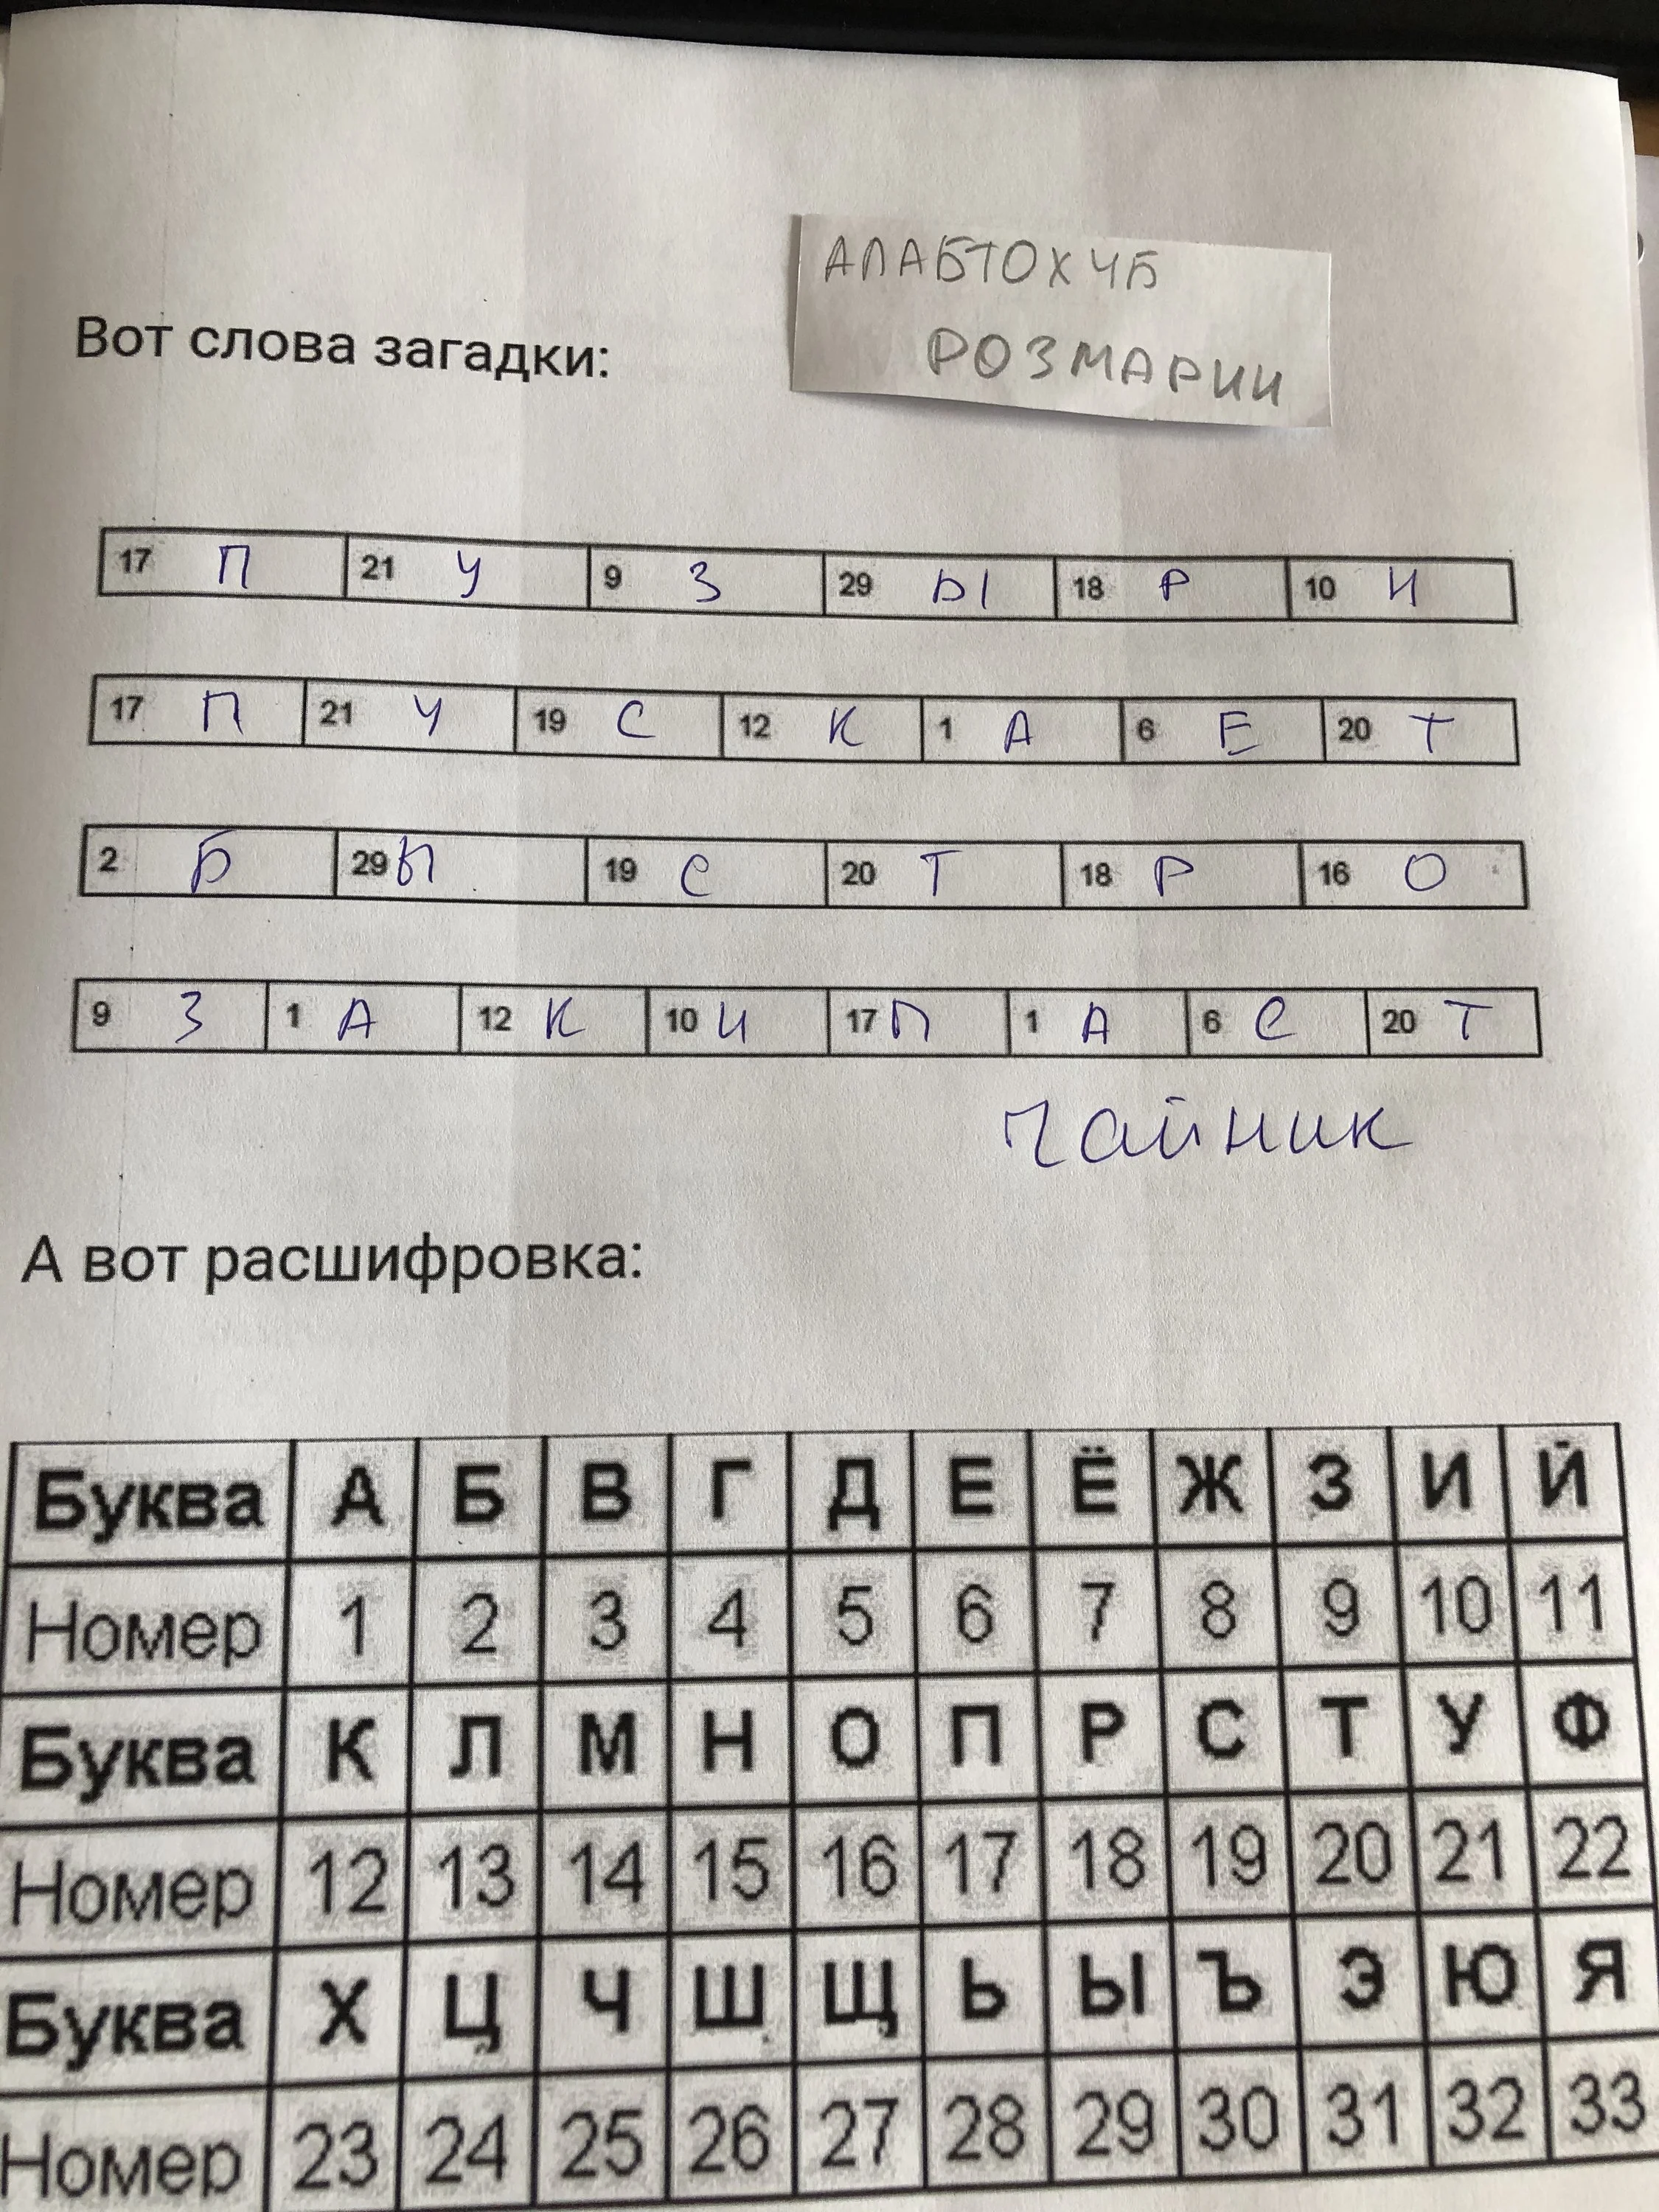 АЛАБТОХЧБ
РОЗМАРИН
Вот слова загадки:
17 П 21 У 9 З 29 Ы 18 Р 10 И
17 П 21 У 19 С 12 К 1 А 6 Е 20 Т
2 Б 29 Ы 19 С 20 Т 18 Р 16 О
9 З 1 А 12 К 10 И 17 П 1 А 6 Е 20 Т
Чайник
А вот расшифровка:
Буква А Б В Г Д Е Ё Ж З И Й
Номер 1 2 3 4 5 6 7 8 9 10 11
Буква К Л М Н О П Р С Т У Ф
Номер 12 13 14 15 16 17 18 19 20 21 22
Буква Х Ц Ч Ш Щ Ь Ы Ъ Э Ю Я
Номер 23 24 25 26 27 28 29 30 31 32 33